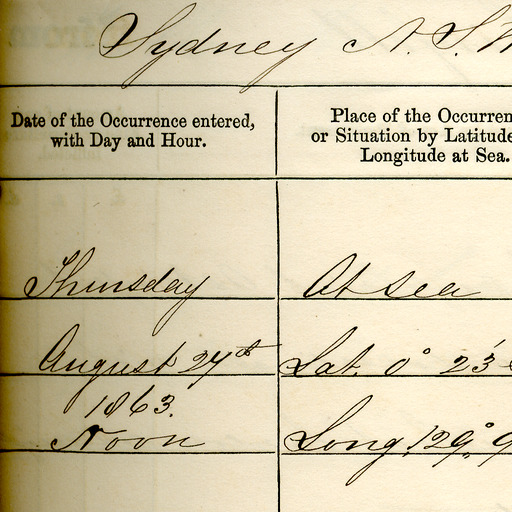 Sydney N. S. W
Date of the Occurrence entered,
with Day and Hour.
Place of the Occurren
or Situation by Latitude
Longitude at Sea.
Thursday
At sea
August 27th
Lat. 0° 23'
1863.
Noon
Long. 129° 9